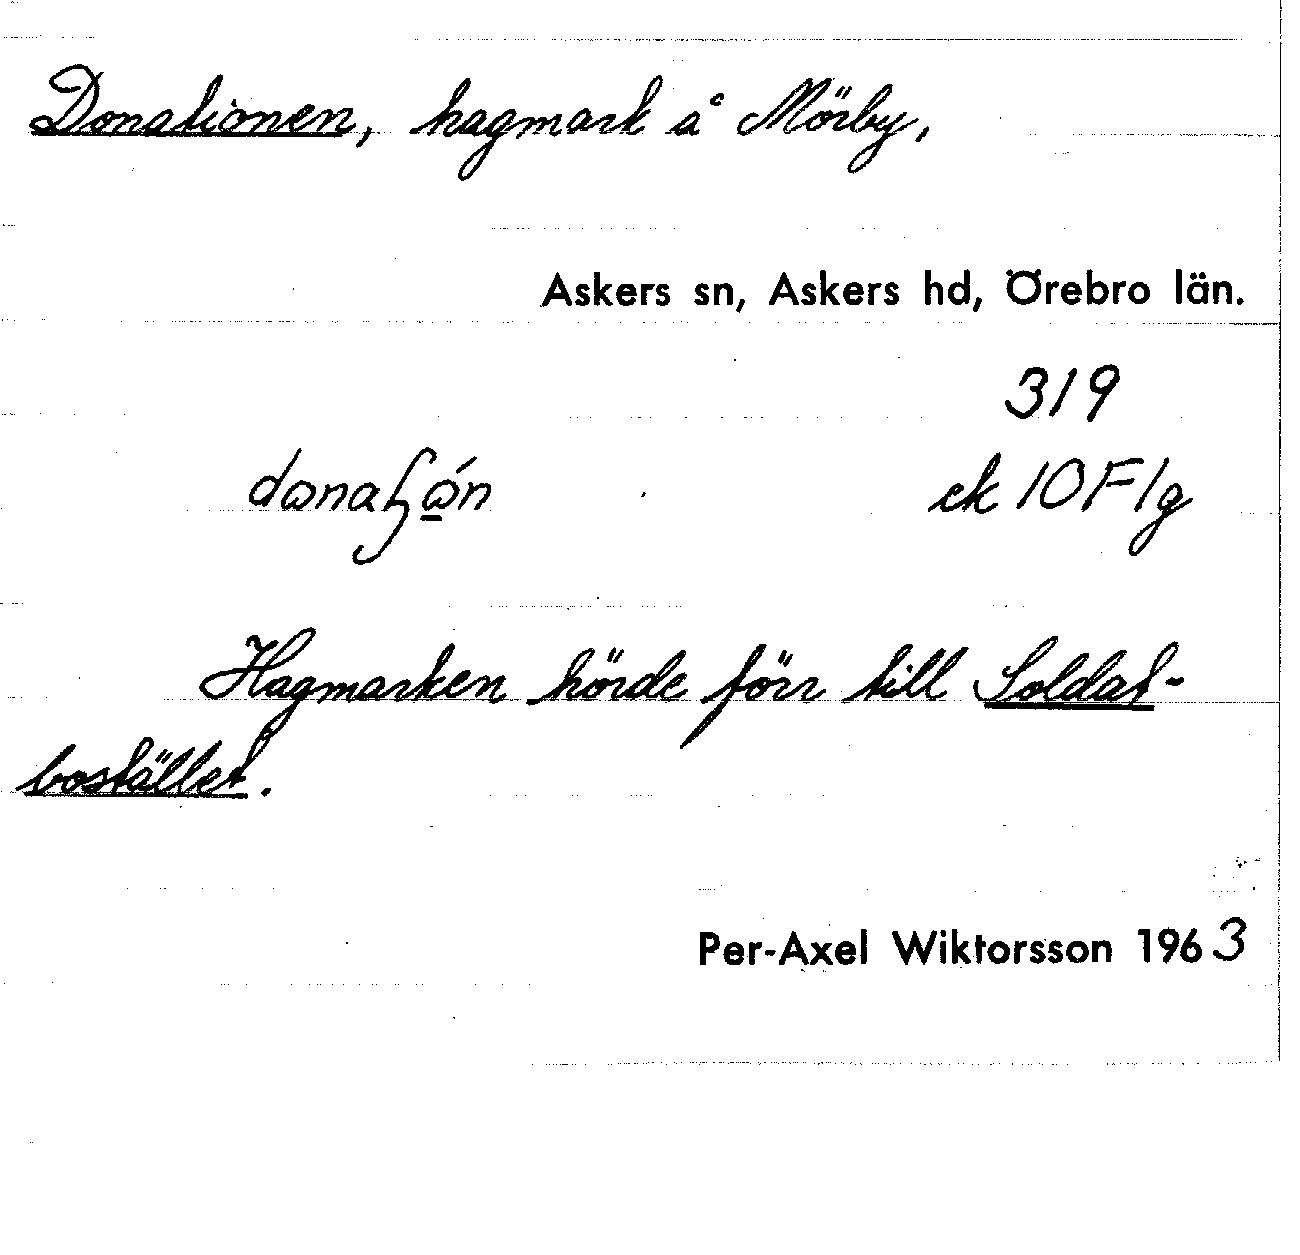 Donationen, hagmark å Mörby,
Askers sn, Askers hd, Örebro län.
319
ek 10F1g
Hagmarken hörde förr till Soldat-
bostället.
Per-Axel Wiktorsson 1963